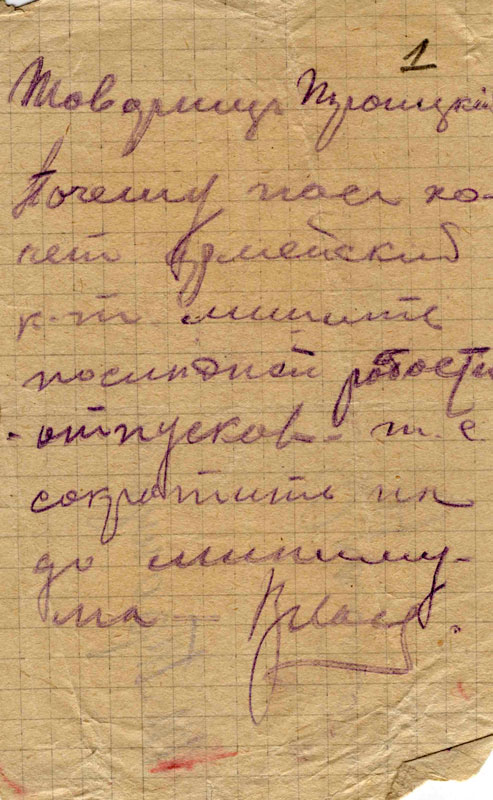 1
Товарищъ
Почему насъ хо-
чет Армейский
к-т лишить
последней радости
- отпусков - т.е.
сократить их
до миниму-
ма —